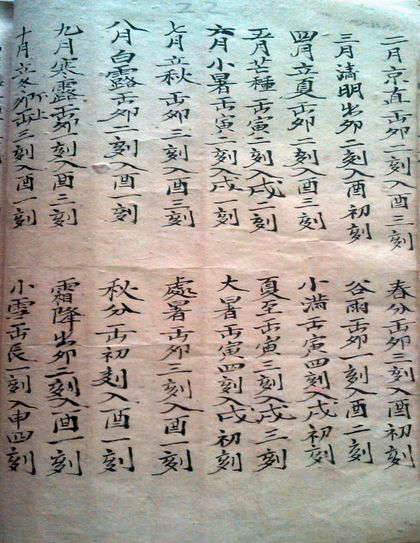 二月京直出卯二刻入酉三刻
春分出卯三刻入酉初刻
三月清明出卯二刻入酉初刻
谷雨出卯一刻入酉二刻
四月立夏出卯一刻入酉三刻
小满出寅四刻入戌初刻
五月芒種出寅一刻入戌二刻
夏至出寅三刻入戌三刻
六月小暑出寅一刻入戌一刻
大暑出寅四刻入戌初刻
七月立秋出卯三刻入酉三刻
處暑出卯三刻入酉一刻
八月白露出卯二刻入酉一刻
秋分出初刻入酉一刻
九月寒露出卯一刻入酉三刻
霜降出卯二刻入酉一刻
十月立冬出卯三刻入酉一刻
小雪出辰一刻入申四刻